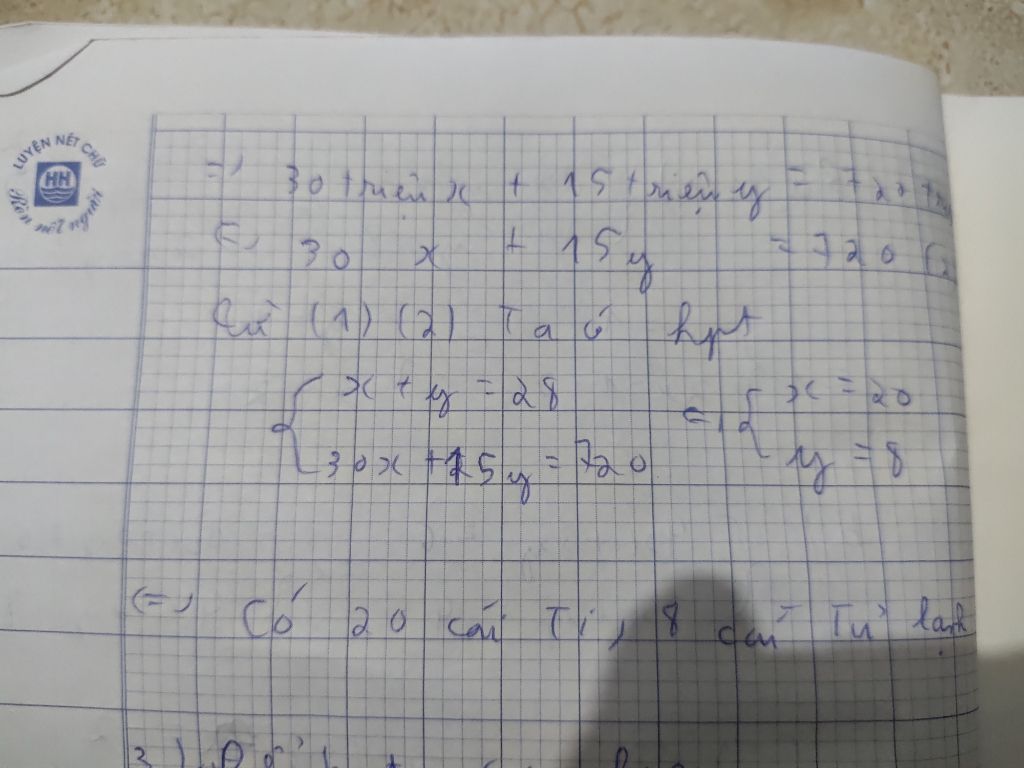 LUYỆN NÉT CHỮ
HH
Rèn nết người
=> 30 triệu x + 15 triệu y = 720
<=> 30 x + 15y = 720 (2
Từ (1) (2) Ta có hpt
x + y = 28
30x + 15y = 720
<=> x = 20
y = 8
<=> Có 20 cái Ti, 8 cái Tủ lạnh
3)